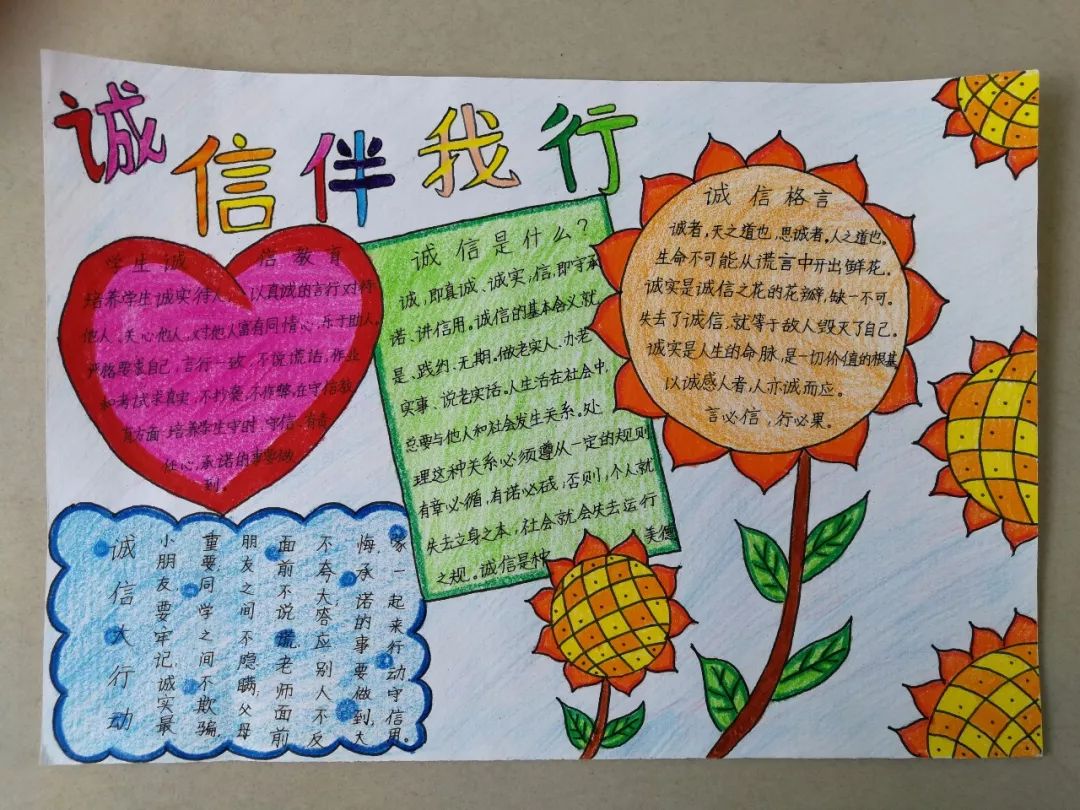 诚信伴我行
学生诚信教育
培养学生诚实待人,以真诚的言行对待
他人、关心他人,对他人富有同情心,乐于助人。
严格要求自己,言行一致,不说谎话,作业
和考试求真实,不抄袭、不作弊,在守信教
育方面,培养学生守时、守信、有责
任心,承诺的事要做
到。
诚信是什么?
诚,即真诚、诚实;信,即守承
诺、讲信用。诚信的基本含义就
是、践约、无期。做老实人、办老
实事、说老实话。人生活在社会中,
总要与他人和社会发生关系。处
理这种关系必须遵从一定的规则
有章必循,有诺必践;否则,个人就
失去立身之本,社会就会失去运行
之规。诚信是种
美德
诚信格言
诚者,天之道也,思诚者,人之道也。
生命不可能从谎言中开出鲜花。
诚实是诚信之花的花瓣,缺一不可。
失去了诚信,就等于敌人毁灭了自己。
诚实是人生的命脉,是一切价值的根基
以诚感人者,人亦诚而应。
言必信,行必果。
诚信大行动
小朋友,要牢记,诚实最
重要同学之间不欺骗,
朋友之间不隐瞒;父母
面前不说谎,老师面前
不夸大答应别人不反
悔,承诺的事要做到,大
家一起来行动守信用。